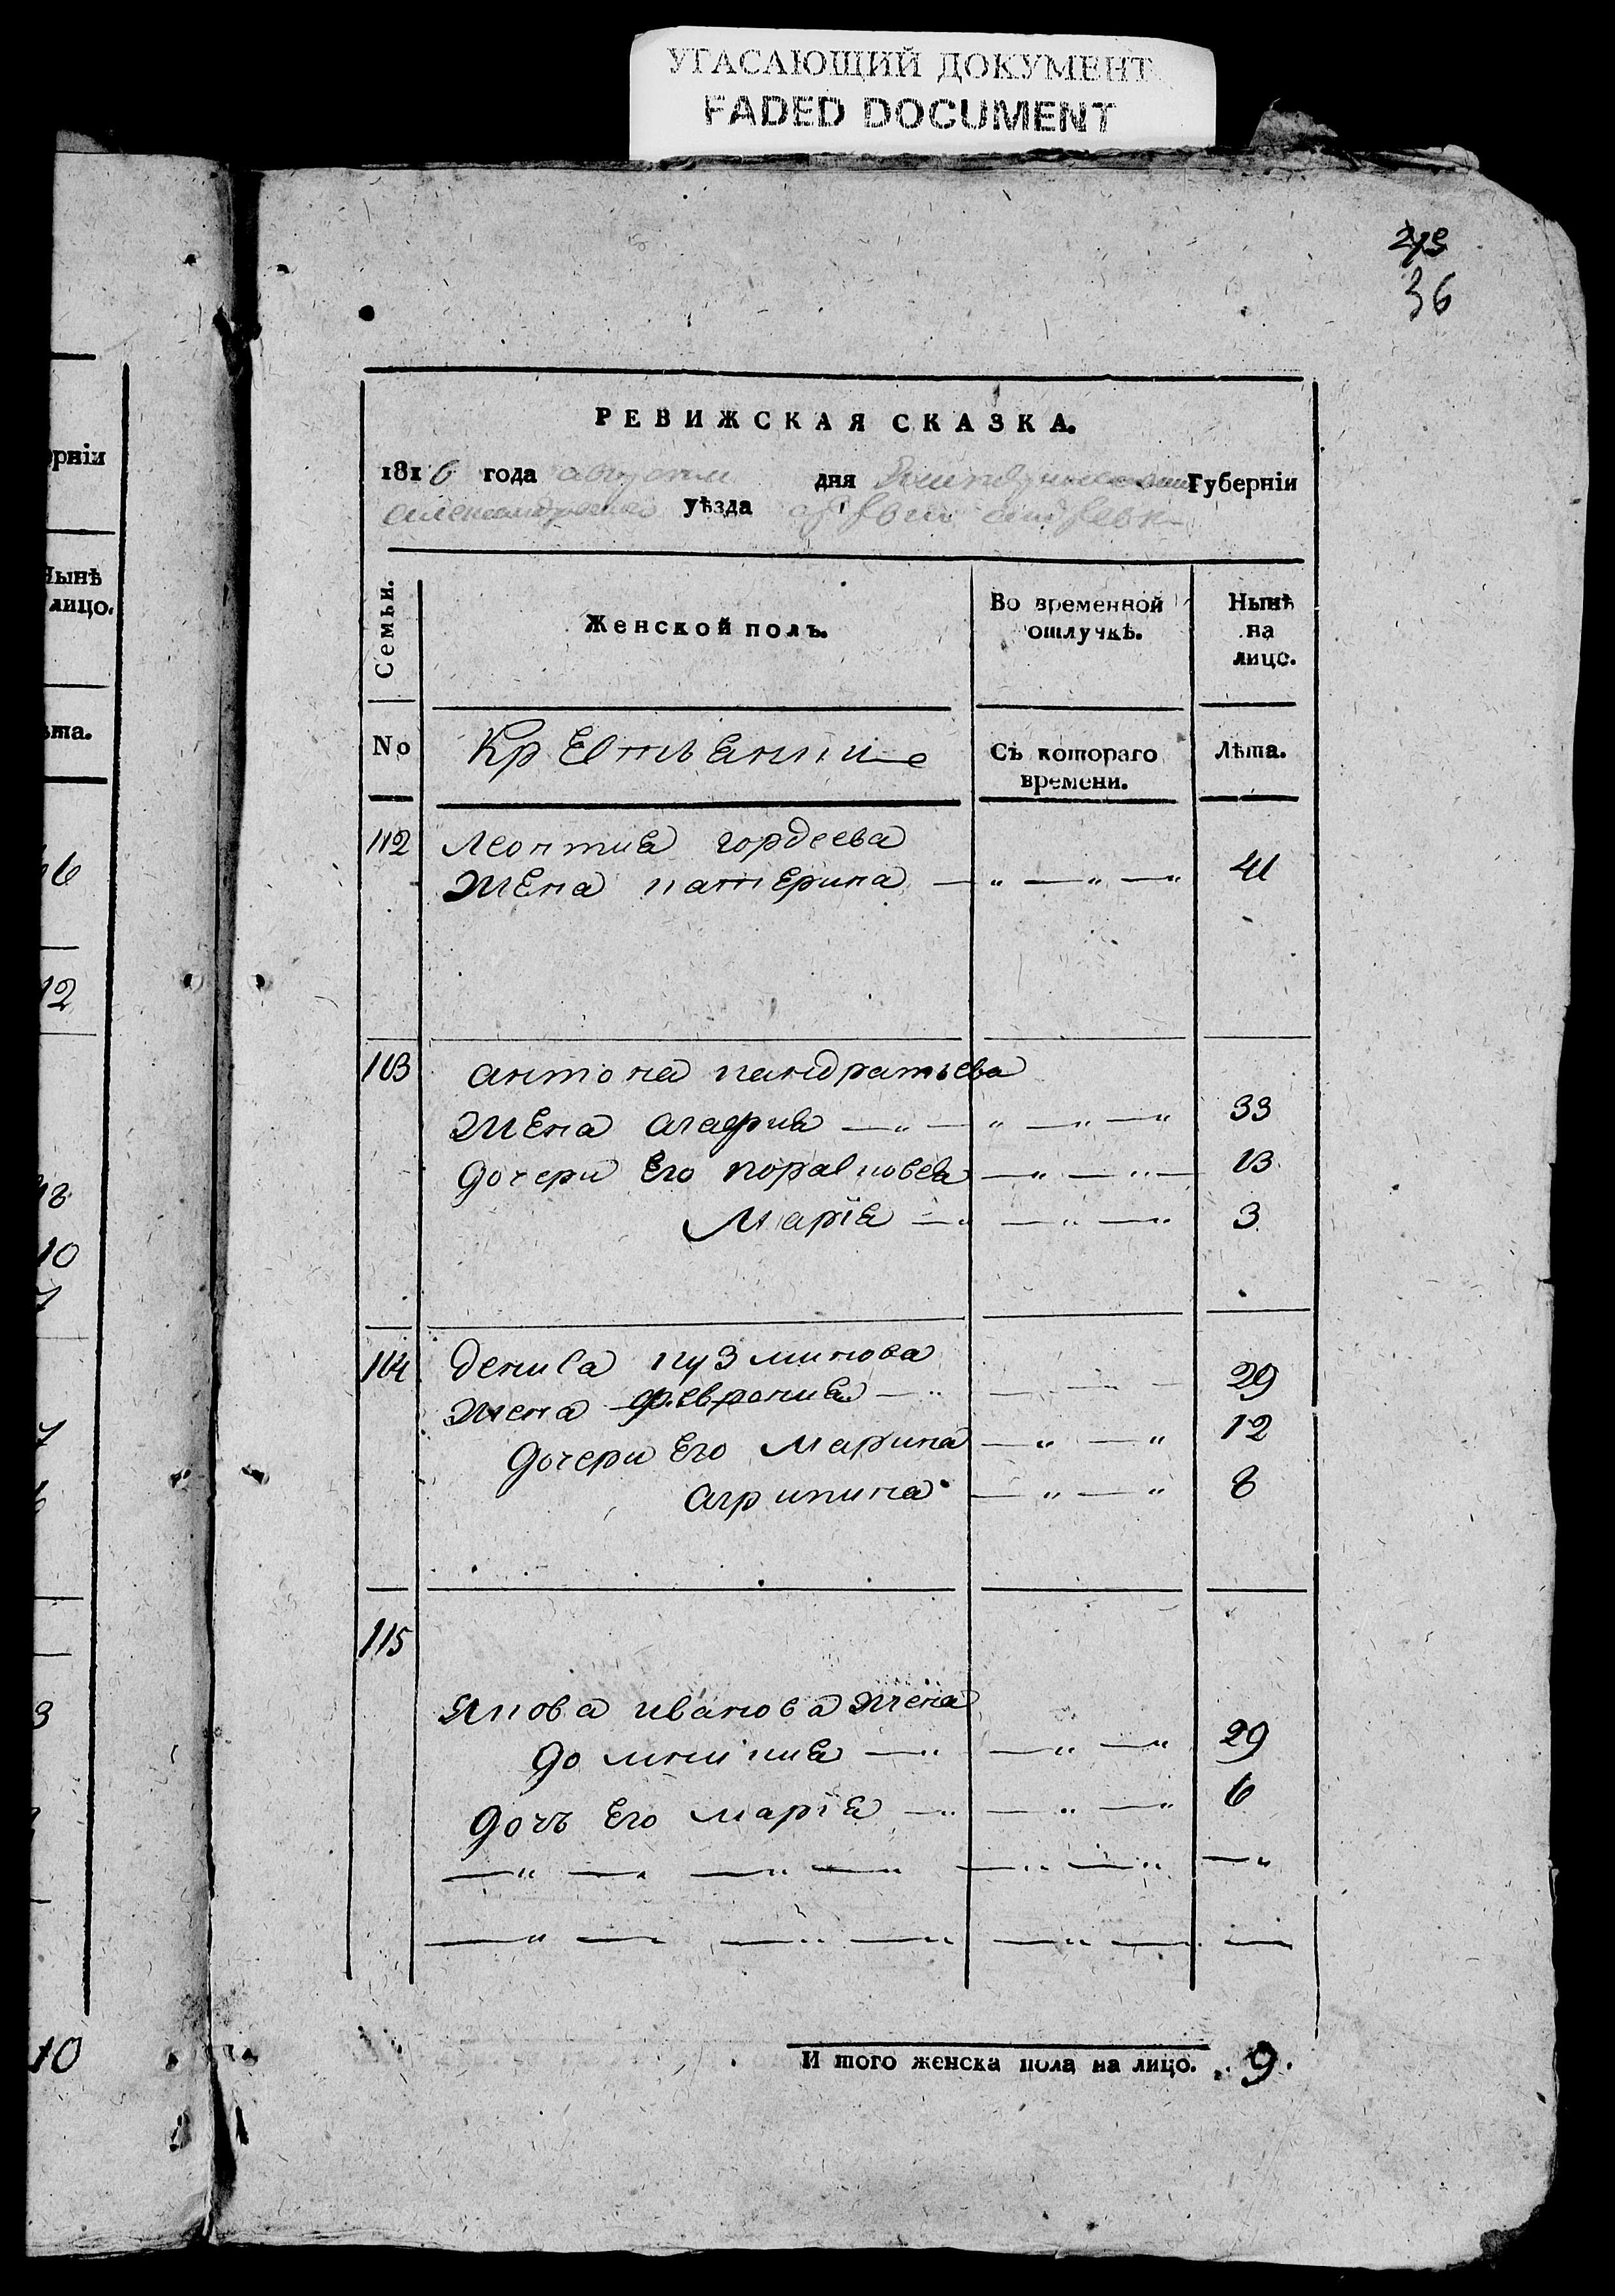 УГАСАЮЩИЙ ДОКУМЕНТ
FADED DOCUMENT
36
РЕВИЖСКАЯ СКАЗКА.
1816 года августа дня Губерніи
уѣзда
Семьи.
Женской полъ.
Во временной отлучкѣ.
Нынѣ на лицо.
No
Крестьянине
Съ котораго времени.
Лѣта.
112 Леонтия гордеева
жена катерина — „ — „ — „ 41
113 антона кандратьева
жена агафия — „ — „ — „ — „ 33
дочери Его — „ — „ — 13
Марія — „ — „ — „ 3
114 дениса кузминова
жена феврония — „ — — — 29
дочери Его Марина — „ — „ 12
агрипина — „ — „ 8
115
Якова иванова жена
домникия — „ — „ — „ 29
дочь Его марія — „ — „ — „ 6
— „ — „ — „ — „ — „ — „ — „
— „ — — „ — „ — „ — —
И того женска пола на лицо. 9.
орніи
Нынѣ
лицо.
ѣта.
12
10
10